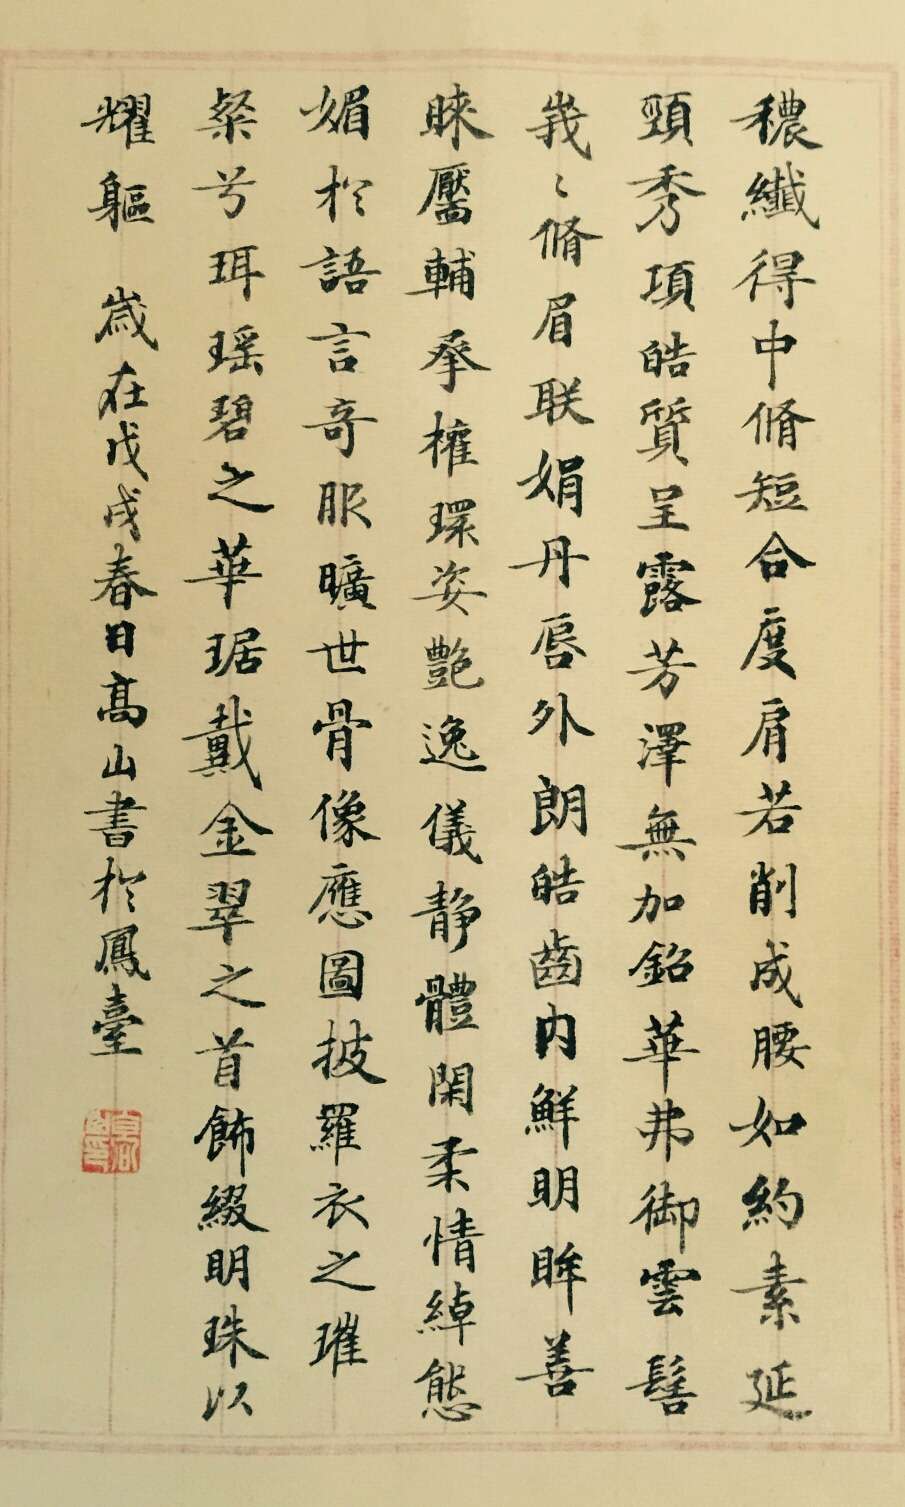 穠纖得中脩短合度肩若削成腰如約素延
頸秀項皓質呈露芳澤無加鉛華弗御雲髻
峩〻脩眉联娟丹唇外朗皓齒内鮮明眸善
睐靨輔承權環姿艶逸儀静體閑柔情綽態
媚於語言竒服曠世骨像應圖披羅衣之璀
粲兮珥瑶碧之華琚戴金翠之首飾綴明珠以
耀軀 歲在戊戌春日高山書於鳳臺